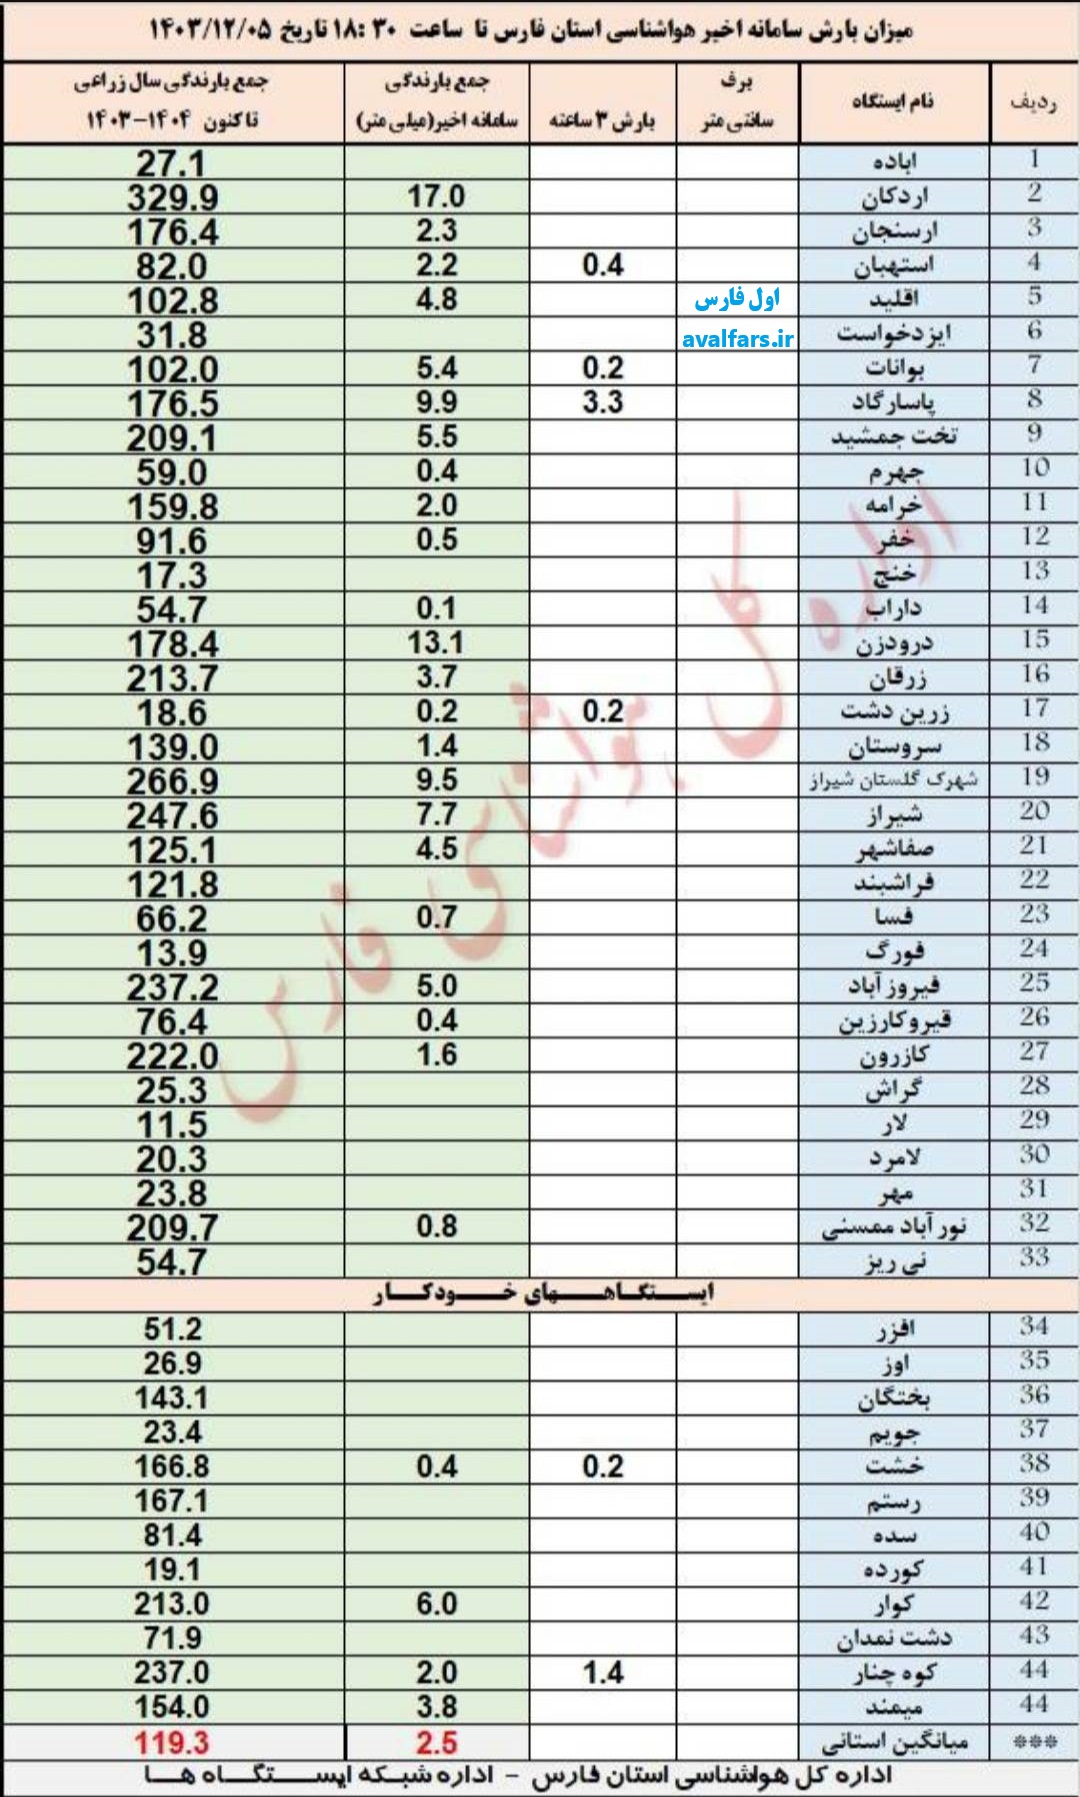 میزان بارش سامانه اخیر هواشناسی استان فارس تا ساعت ۳۰ :۱۸ تاریخ ۱۴۰۳/۱۲/۰۵
ردیف نام ایستگاه برف سانتی متر بارش ۳ ساعته جمع بارندگی سامانه اخیر(میلی متر) جمع بارندگی سال زراعی تا کنون ۱۴۰۴-۱۴۰۳
1 اباده 27.1
2 اردکان 17.0 329.9
3 ارسنجان 2.3 176.4
4 استهبان 0.4 2.2 82.0
5 اقلید اول فارس 4.8 102.8
6 ایزدخواست avalfars.ir 31.8
7 بوانات 0.2 5.4 102.0
8 پاسارگاد 3.3 9.9 176.5
9 تخت جمشید 5.5 209.1
10 جهرم 0.4 59.0
11 خرامه 2.0 159.8
12 خفر 0.5 91.6
13 خنج 17.3
14 داراب 0.1 54.7
15 درودزن 13.1 178.4
16 زرقان 3.7 213.7
17 زرین دشت 0.2 0.2 18.6
18 سروستان 1.4 139.0
19 شهرک گلستان شیراز 9.5 266.9
20 شیراز 7.7 247.6
21 صفاشهر 4.5 125.1
22 فراشبند 121.8
23 فسا 0.7 66.2
24 فورگ 13.9
25 فیروزآباد 5.0 237.2
26 قیروکارزین 0.4 76.4
27 کازرون 1.6 222.0
28 گراش 25.3
29 لار 11.5
30 لامرد 20.3
31 مهر 23.8
32 نورآباد ممسنی 0.8 209.7
33 نی ریز 54.7
ایستگاههای خودکار
34 افزر 51.2
35 اوز 26.9
36 بختگان 143.1
37 جویم 23.4
38 خشت 0.2 0.4 166.8
39 رستم 167.1
40 سده 81.4
41 کورده 19.1
42 کوار 6.0 213.0
43 دشت نمدان 71.9
44 کوه چنار 1.4 2.0 237.0
44 میمند 3.8 154.0
*** میانگین استانی 2.5 119.3
اداره کل هواشناسی استان فارس - اداره شبکه ایستگاه ها
اداره کل هواشناسی فارس